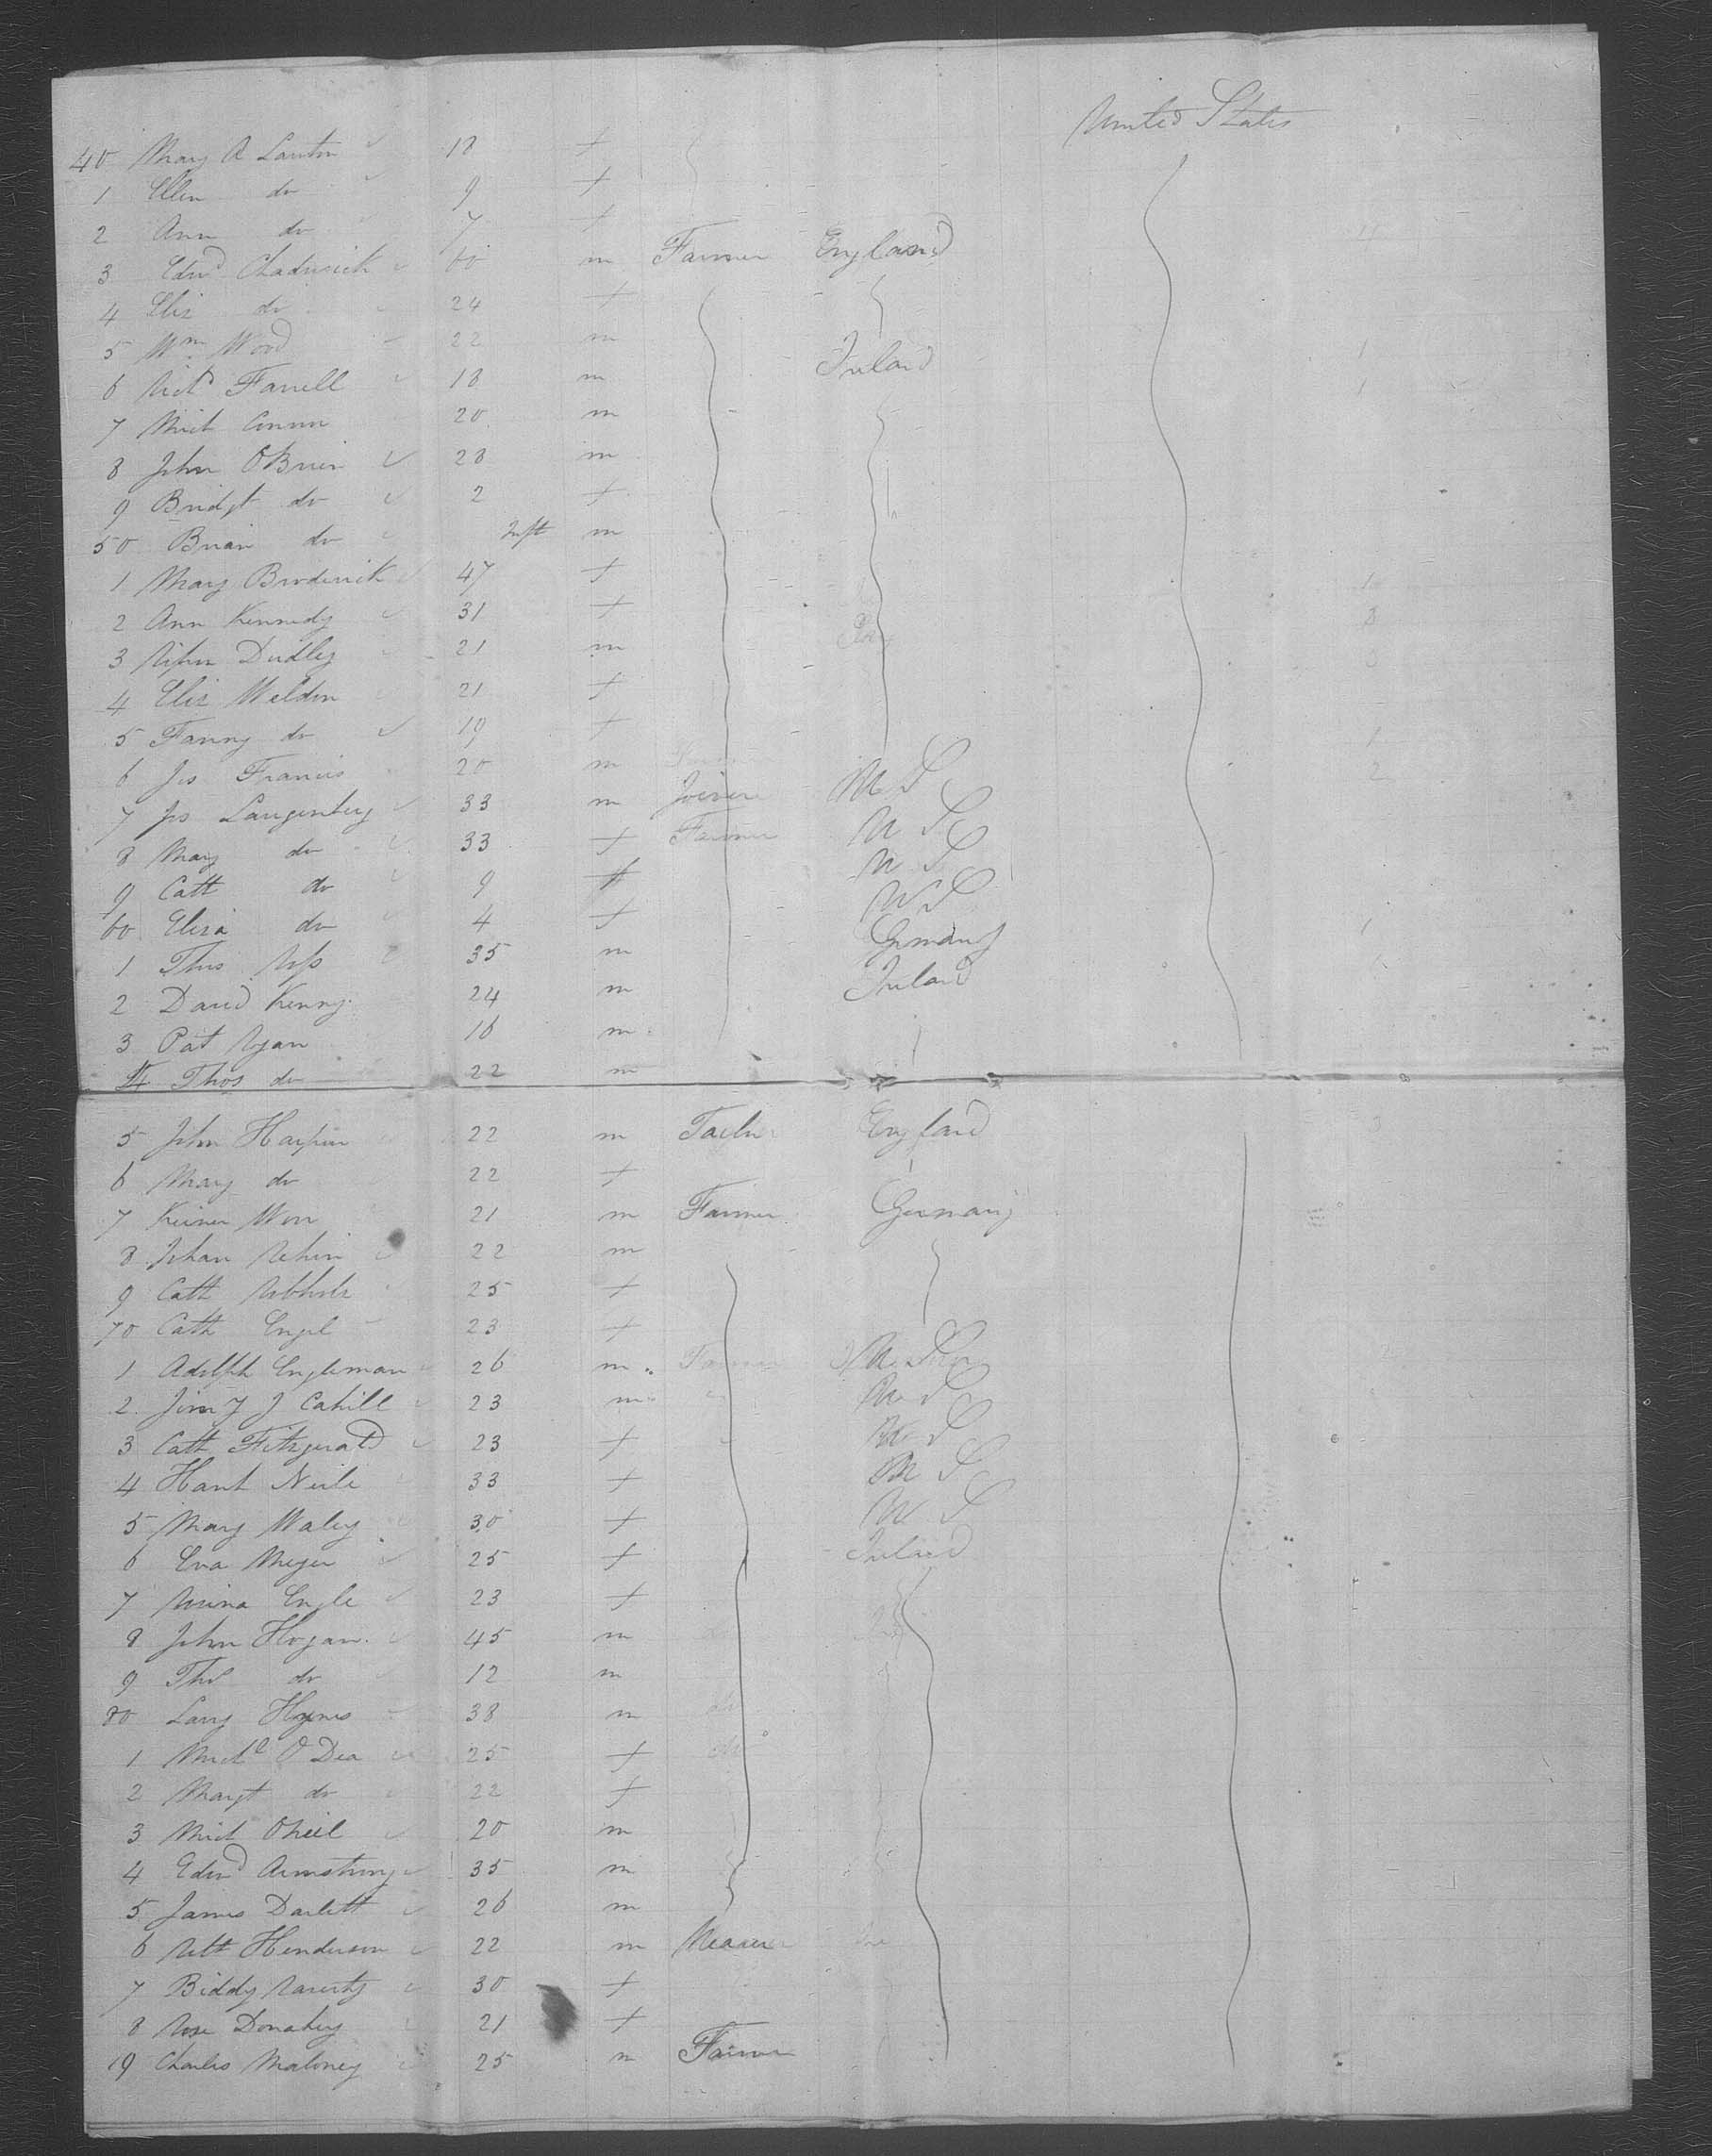 United States
40 Mary A Lawton 18 f
1 Ellen do 9 f
2 Ann do 7 f
3 Edwd Chadwick 60 m Farmer England
4 Eliz do 24 f
5 Wm Wood 22 m
6 Richd Farrell 18 m Ireland
7 Mich Connor 20 m
8 John OBrien 28 m
9 Bridgt do 2 f
50 Brian do Inft m
1 Mary Broderick 47 f
2 Ann Kennedy 31 f
3 John Dudley 21 m
4 Eliz Weldon 21 f
5 Fanny do 19 f
6 Jos Francis 20 m
7 Jos Langenberg 33 m Joiner U S
8 Mary do 33 f Farmer U S
9 Cath do 9 f U S
60 Eliza do 4 f U S
1 Thos 35 m Germany
2 David Kenny 24 m Ireland
3 Pat Ryan 16 m
4 Thos do 22 m
5 John Harper 22 m Tailor England
6 Mary do 22 f
7 Won 21 m Farmer Germany
8 Johan 22 m
9 Cath 25 f
70 Cath Engel 23 f
1 Adolph Engleman 26 m U S
2 Jimy J Cahill 23 m U S
3 Cath Fitzgerald 23 f U S
4 Hant Neile 33 f U S
5 Mary Waley 30 f U S
6 Eva Meyer 25 f Ireland
7 Mina Engle 23 f
8 John Hogan 45 m
9 Thos do 12 m
80 Larry Hynes 38 m
1 Michl O Dea 25 f
2 Margt do 22 f
3 Mich ONeil 20 m
4 Edwd Armstrong 35 m
5 James Darlett 26 m
6 Robt Henderson 22 m Weaver
7 Biddy 30 f
8 Rose Donahey 21 f
9 Charles Maloney 25 m Farmer